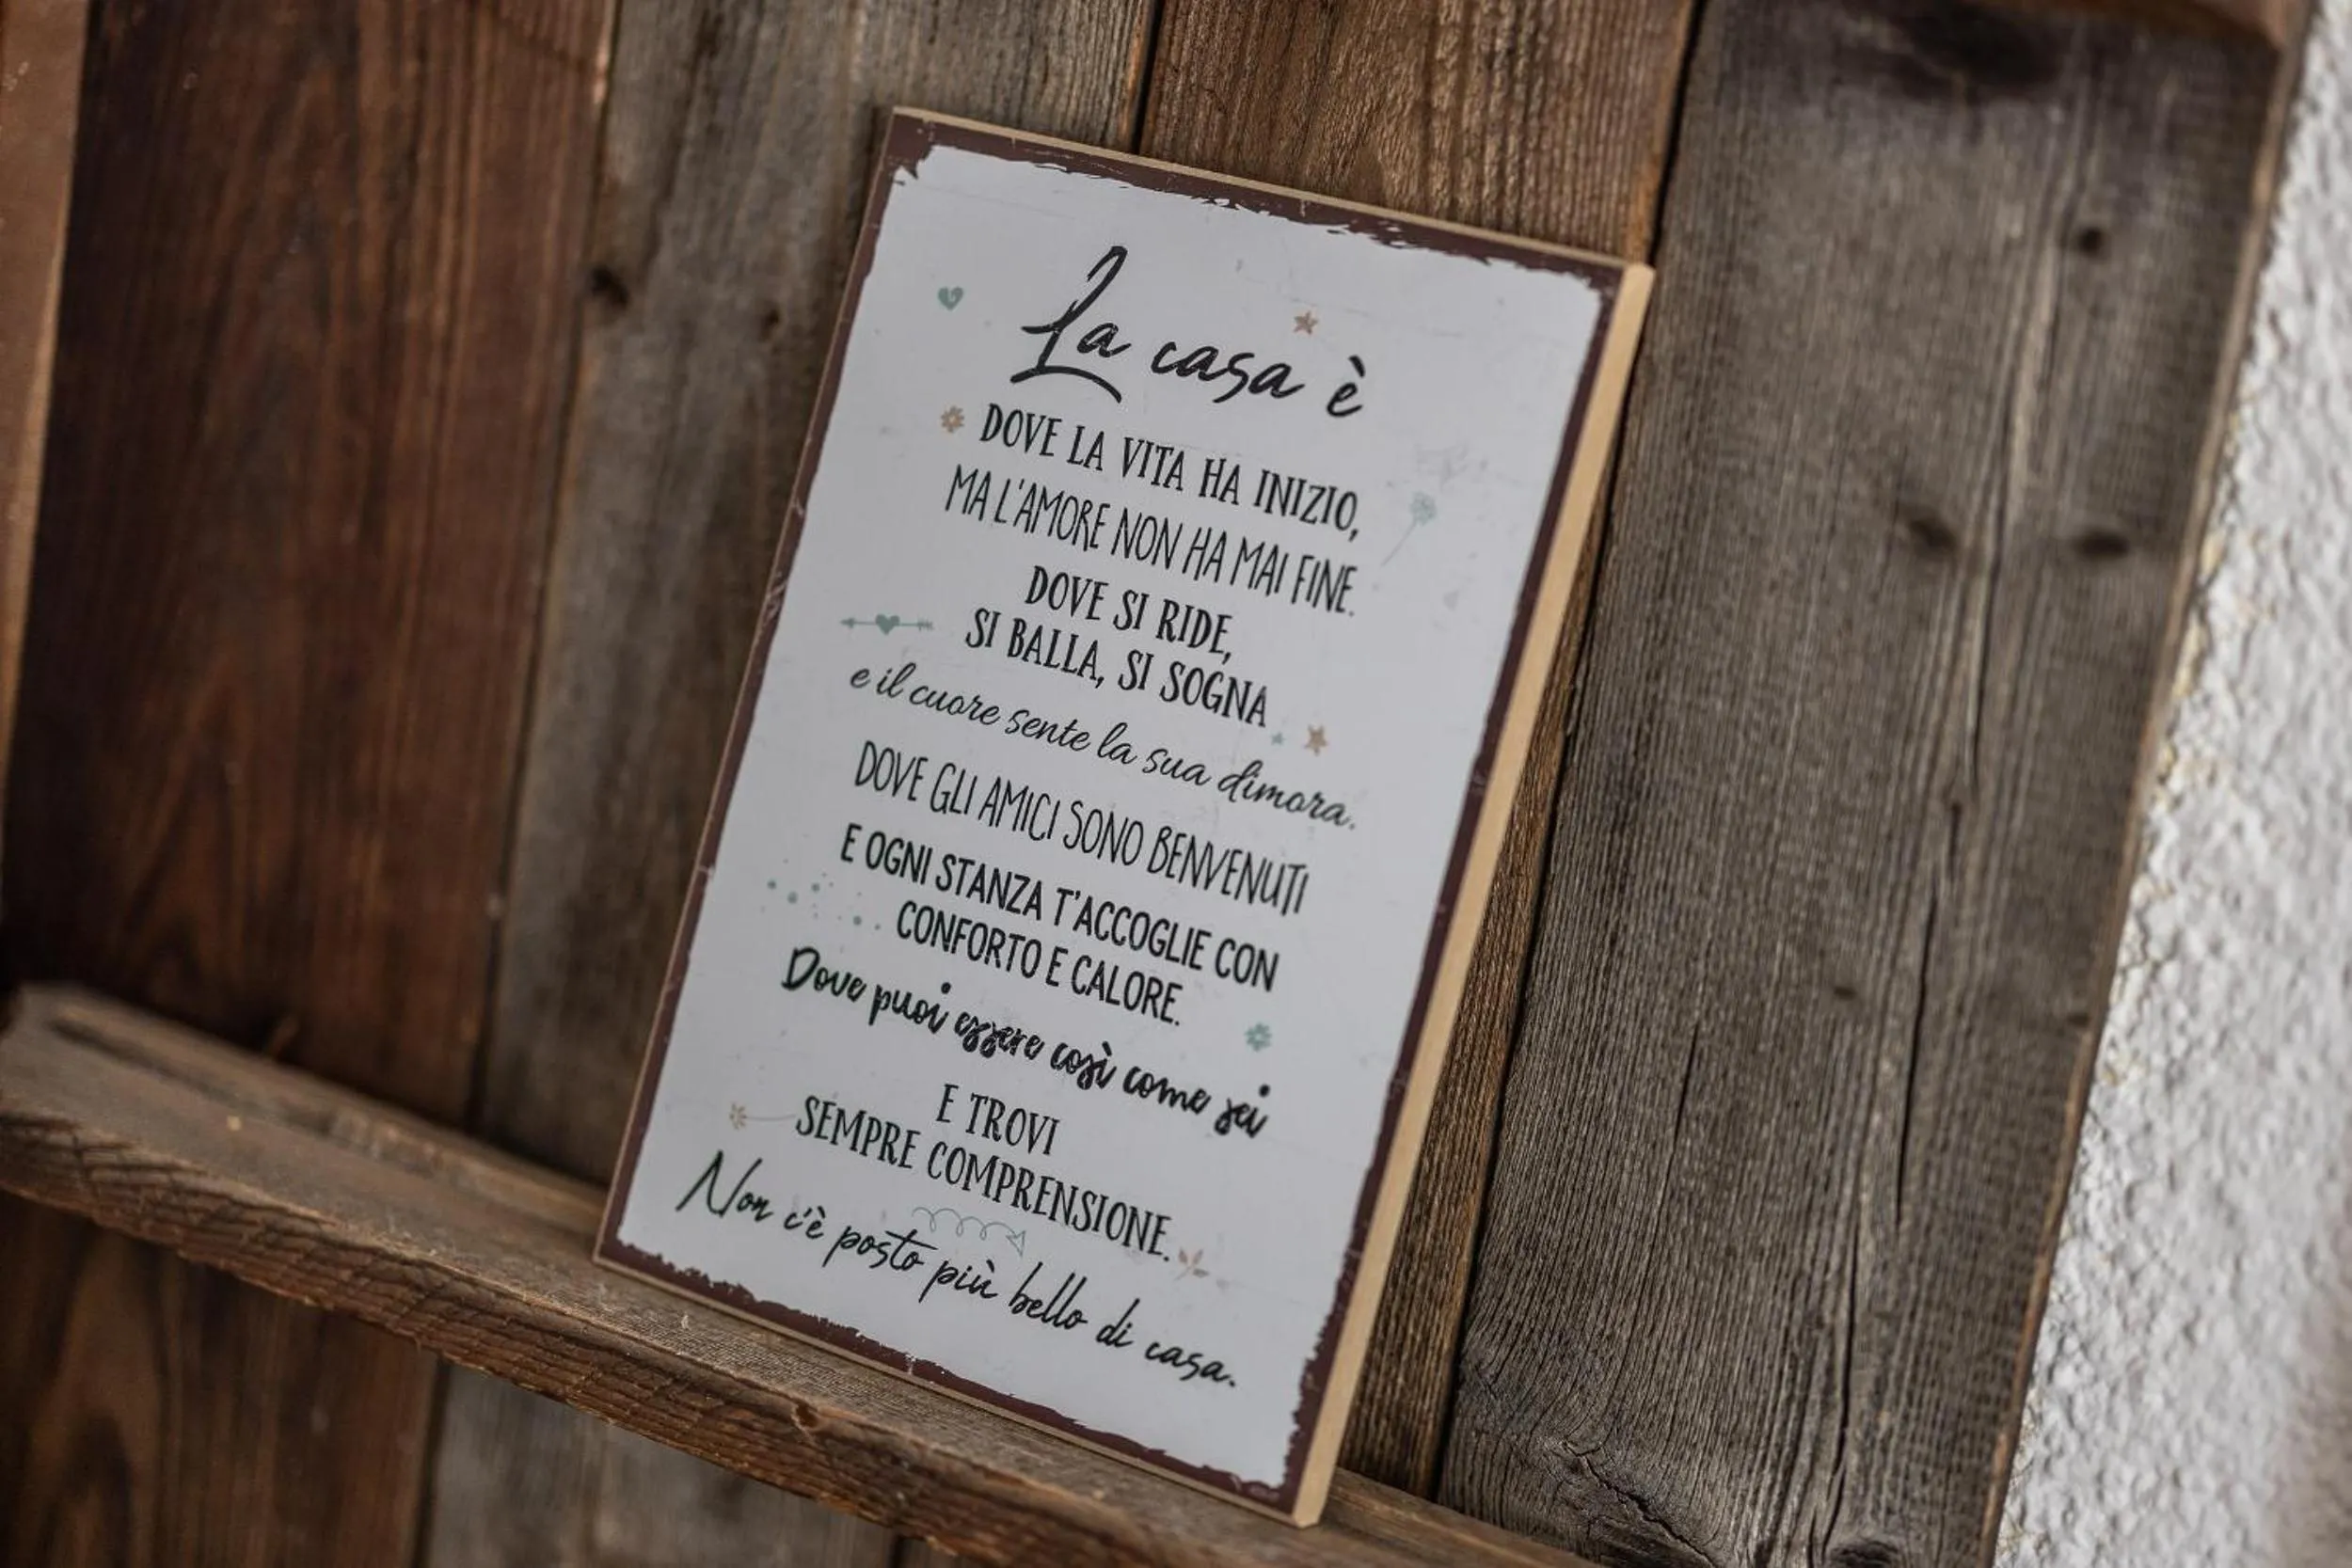 La casa è
DOVE LA VITA HA INIZIO,
MA L'AMORE NON HA MAI FINE.
DOVE SI RIDE,
SI BALLA, SI SOGNA
e il cuore sente la sua dimora.
DOVE GLI AMICI SONO BENVENUTI
E OGNI STANZA T'ACCOGLIE CON
CONFORTO E CALORE.
Dove puoi essere così come sei
E TROVI
SEMPRE COMPRENSIONE.
Non c'è posto più bello di casa.